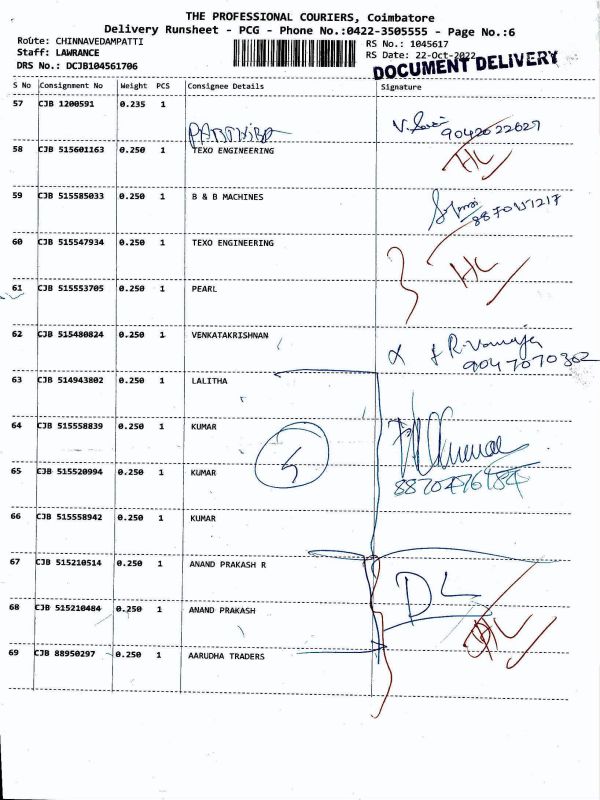 THE PROFESSIONAL COURIERS, Coimbatore
Delivery Runsheet - PCG - Phone No.:0422-3505555 - Page No.:6
Route: CHINNAVEDAMPATTI RS No.: 1045617
Staff: LAWRANCE RS Date: 22-Oct-2022
DRS No.: DCJB104561706 DOCUMENT DELIVERY
S No Consignment No Weight PCS Consignee Details Signature
57 CJB 1200591 0.235 1
9042022627
58 CJB 515601163 0.250 1 TEXO ENGINEERING HL
59 CJB 515585033 0.250 1 B & B MACHINES
60 CJB 515547934 0.250 1 TEXO ENGINEERING HL
61 CJB 515553705 0.250 1 PEARL
62 CJB 515480824 0.250 1 VENKATAKRISHNAN
9047070302
63 CJB 514943802 0.250 1 LALITHA
64 CJB 515558839 0.250 1 KUMAR
65 CJB 515520994 0.250 1 KUMAR
8870476484
66 CJB 515558942 0.250 1 KUMAR
67 CJB 515210514 0.250 1 ANAND PRAKASH R
DL
68 CJB 515210484 0.250 1 ANAND PRAKASH
69 CJB 88950297 0.250 1 AARUDHA TRADERS